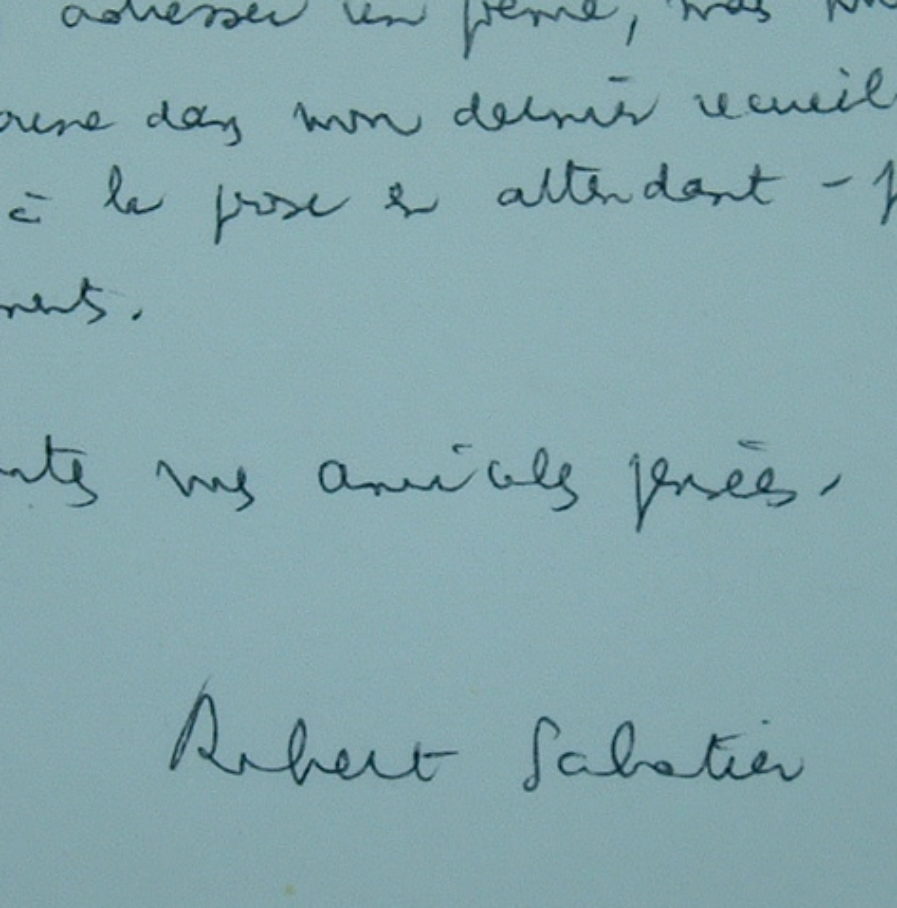 adresser un poème, mais
dans mon dernier recueil
à la prose en attendant -
ments.
mes amicales pensées.
Robert Sabatier